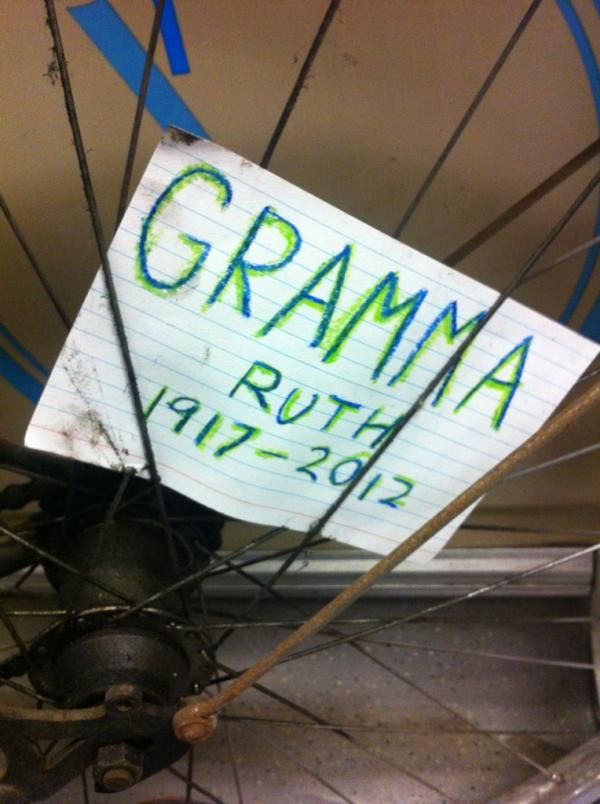 GRAMMA
RUTH
1917-2012